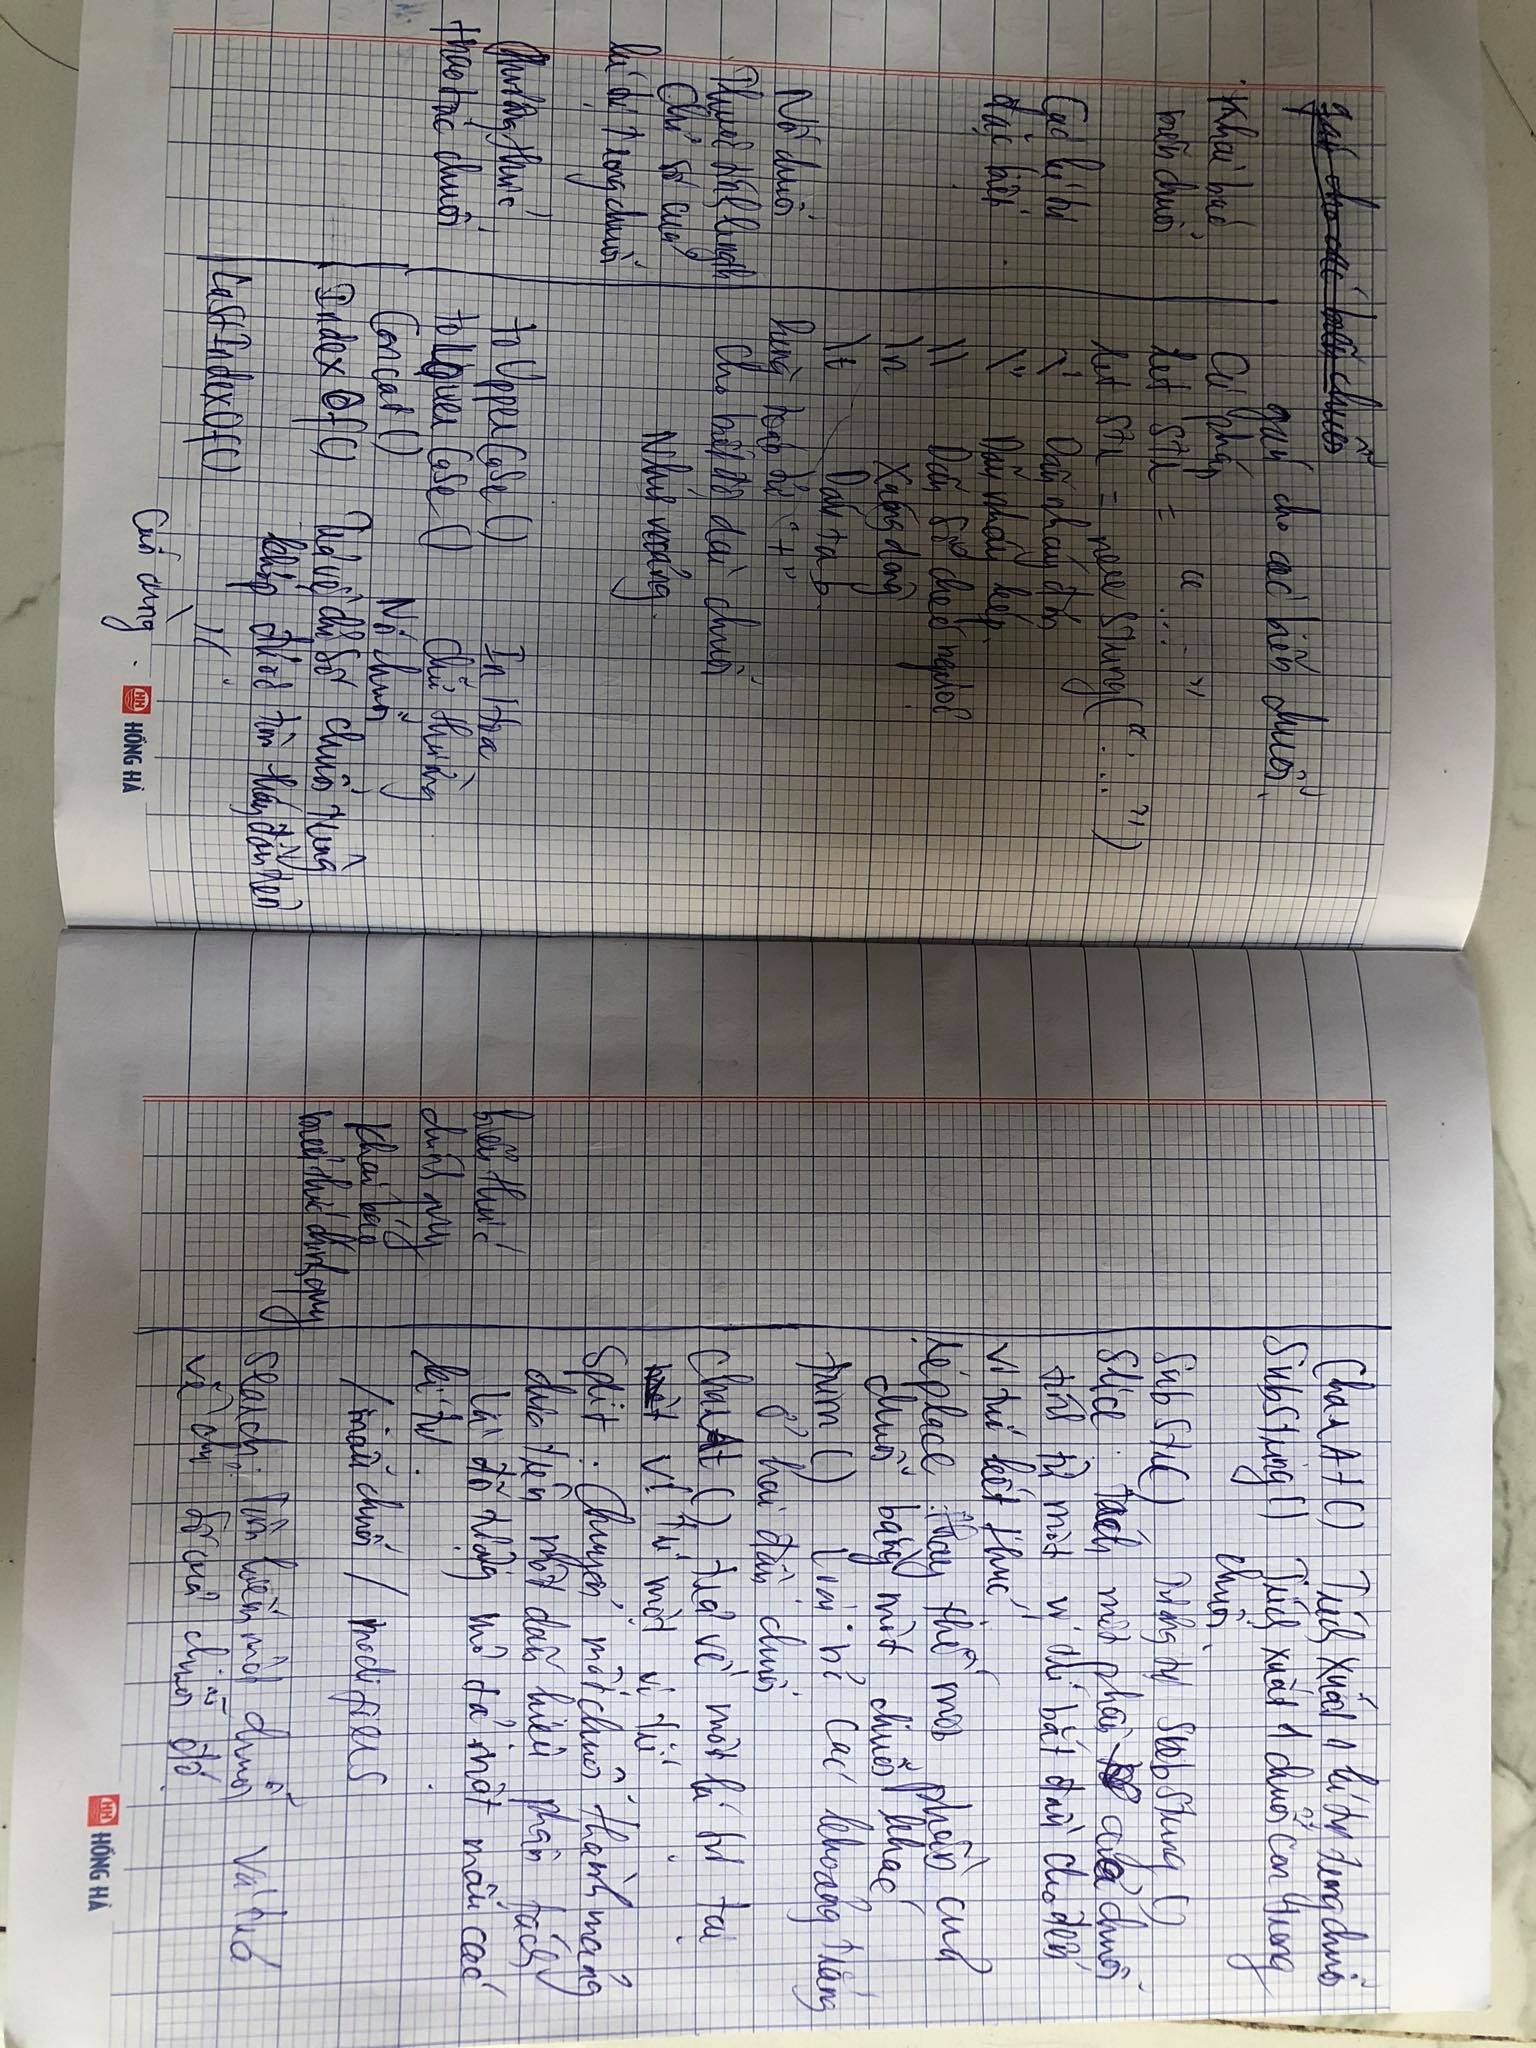 gán cho các biến chuỗi
gán cho các biến chuỗi.
Khai báo
biến chuỗi
Cú pháp
let str = " ... "
let str = new String("......")
Các kí tự
đặc biệt
\' Dấu nháy đơn
\" Dấu nháy kép
\\ Dấu sổ chéo ngược
\n Xuống dòng
\t Dấu tab
Nối chuỗi
bằng toán tử "+"
Thuộc tính length
Cho biết độ dài chuỗi
Chỉ số của
kí tự trong chuỗi
Như mảng.
Phương thức
thao tác chuỗi
toUpperCase() In Hoa
toLowerCase() Chữ thường
Concat() Nối chuỗi
IndexOf() Trả về chỉ số chuỗi trùng
khớp được tìm thấy đầu tiên
LastIndexOf() //
Cuối cùng.
HỒNG HÀ
CharAt() Trích xuất 1 kí tự trong chuỗi
SubString() Trích xuất 1 chuỗi con trong
chuỗi
SubStr() Tương tự SubString()
Slice: Tách một phần của chuỗi
tính từ một vị trí bắt đầu cho đến
vị trí kết thúc
replace: thay thế một phần của
chuỗi bằng một chuỗi khác
trim() Loại bỏ các khoảng trắng
ở hai đầu chuỗi
CharAt() trả về một kí tự tại
một vị trí một vị trí.
Split: Chuyển một chuỗi thành mảng
dựa trên một dấu hiệu phân tách
biểu thức
chính quy
Là đối tượng mô tả một mẫu các
kí tự.
Khai báo
biểu thức chính quy
/mẫu chuỗi/ modifiers
Search: Tìm kiếm một chuỗi và trả
về chỉ số của chuỗi đó.
HỒNG HÀ